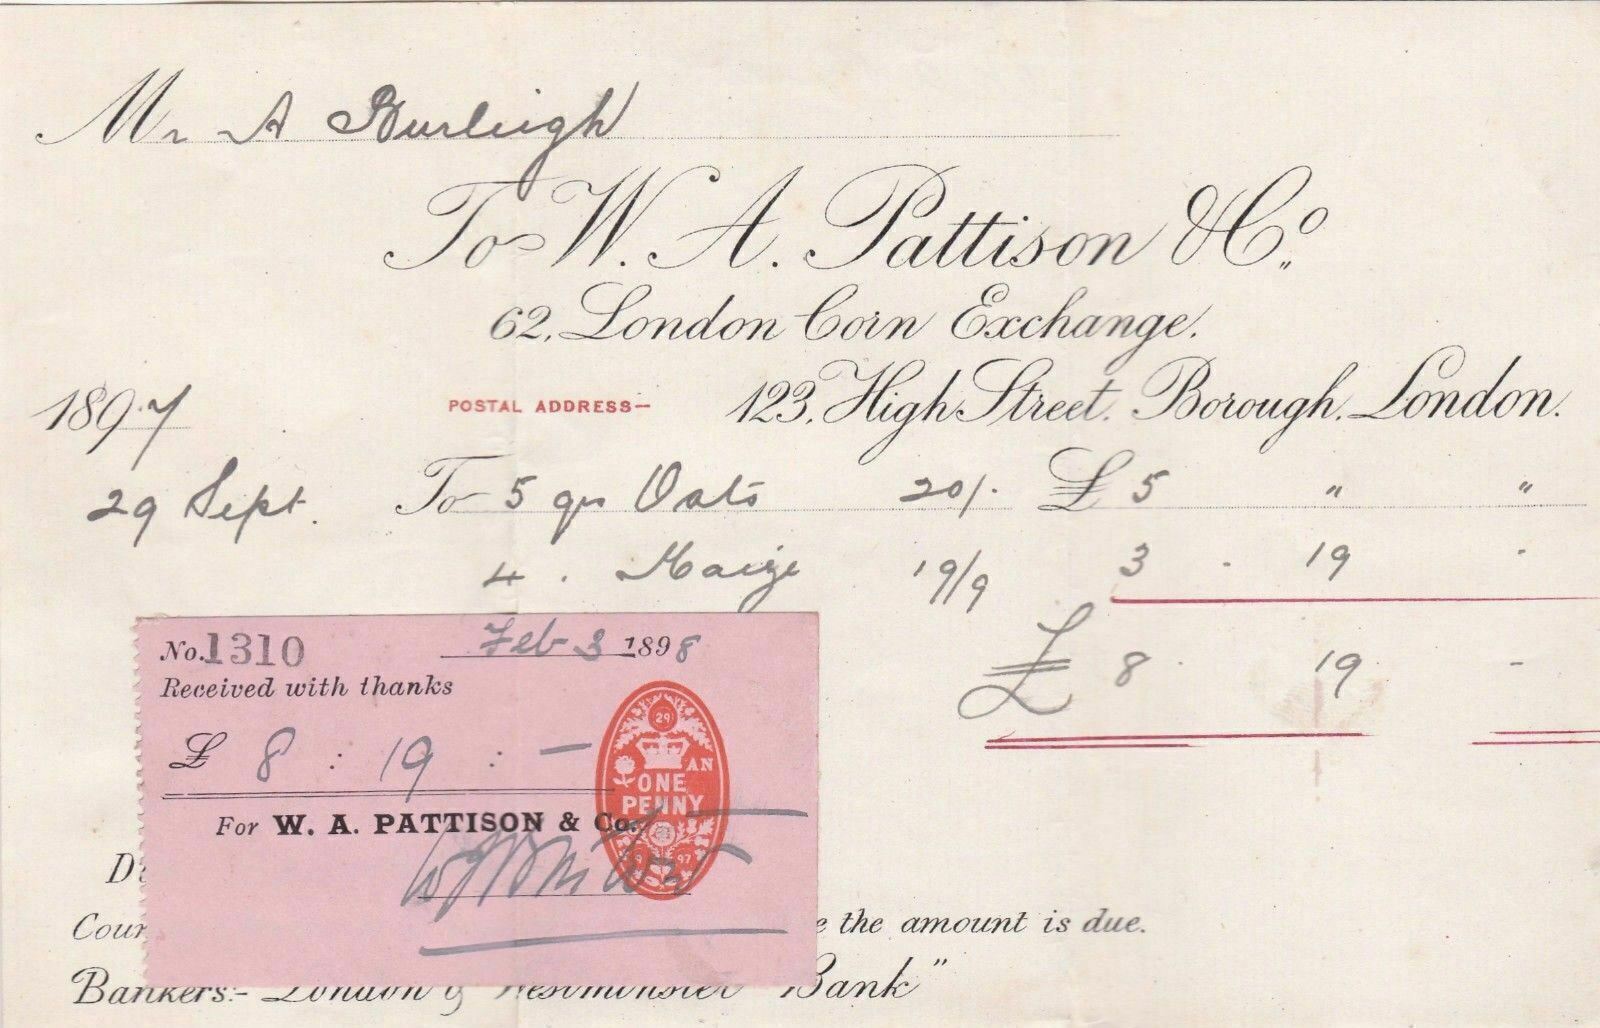 Mr A Burleigh
To W. A. Pattison & Co.
62, London Corn Exchange.
1897 POSTAL ADDRESS— 123, High Street, Borough, London.
29 Sept. To 5 qrs Oats 20/- £ 5 " "
4 . Maize 19/9 3 . 19 .
£ 8 . 19 -
No. 1310 Feb 3 1898
Received with thanks
£ 8 : 19 : -
For W. A. PATTISON & Co.
29
AN
ONE
PENNY
97
the amount is due.
Bankers:- London & Westminster Bank"